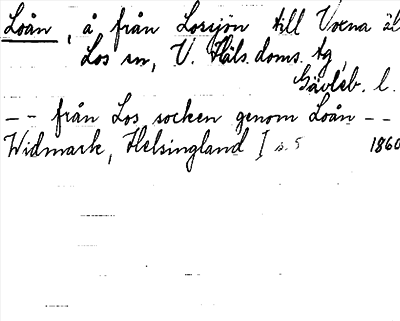 Loån, å från Lossjön till Voxna äl
Los sn, V. Häls. doms. tg,
Gävleb. l.
-- från Los socken genom Loån --
Widmark, Helsingland I s. 5 1860